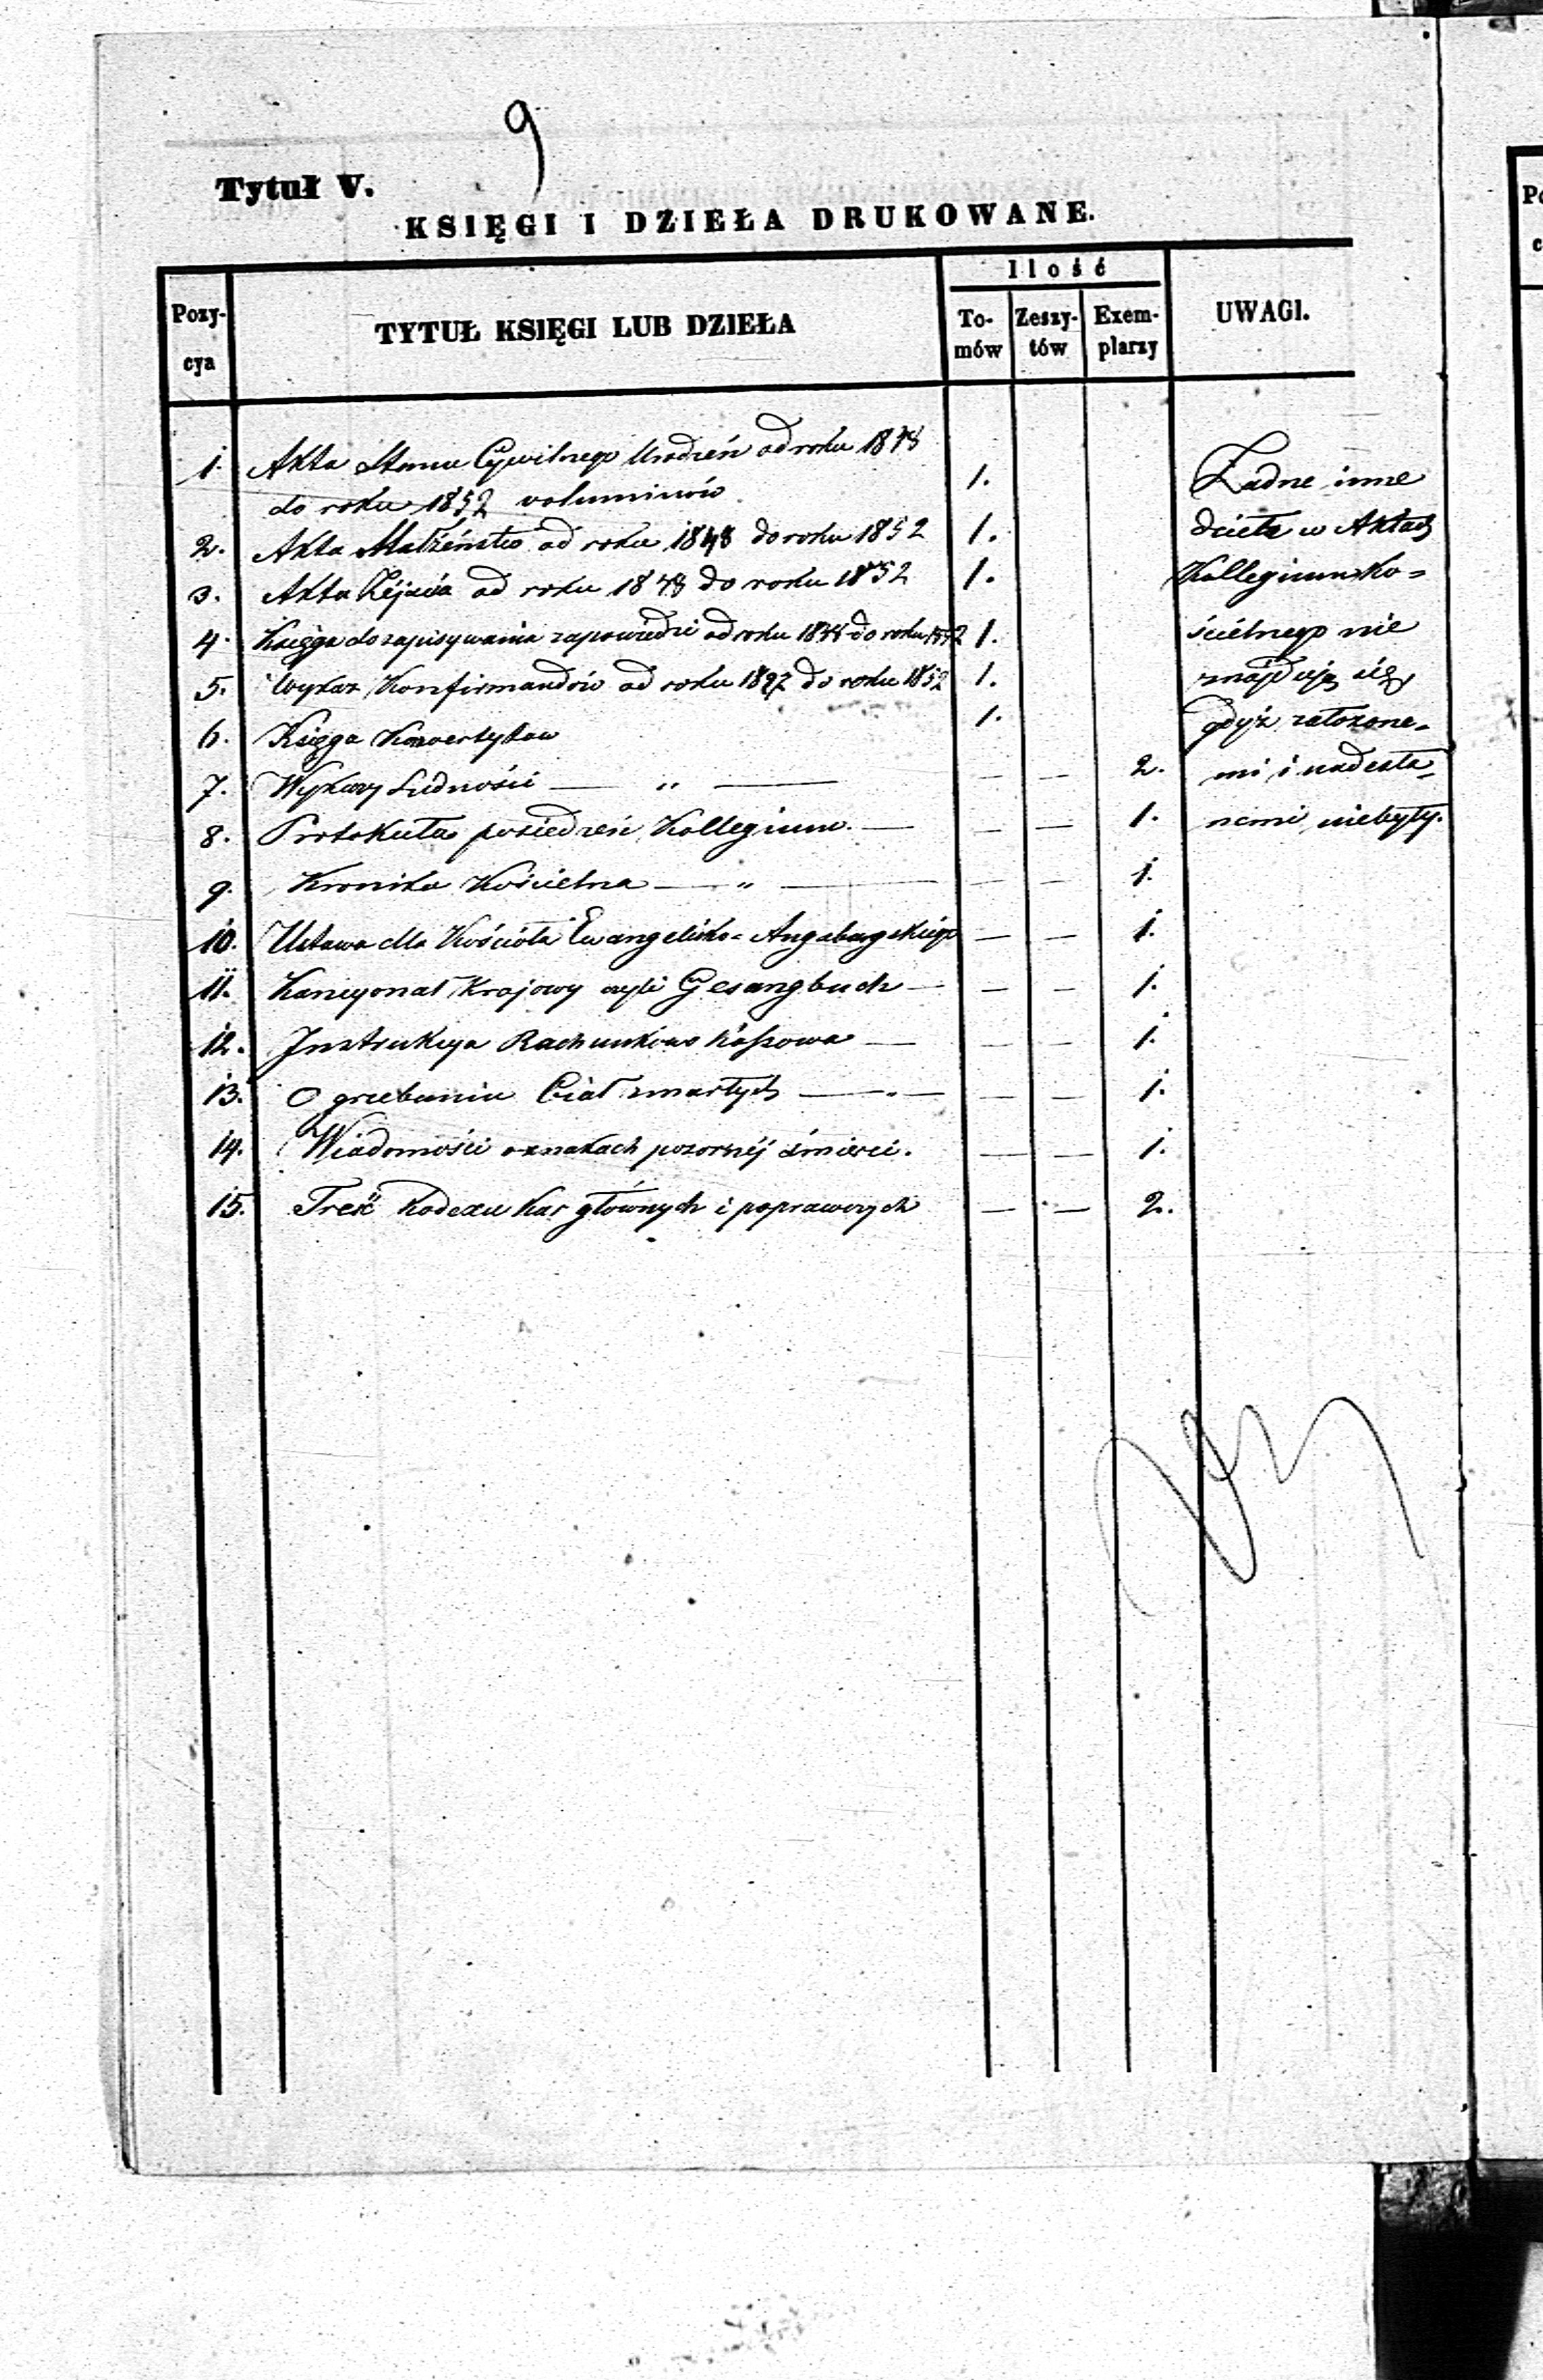 9
Tytuł V.
KSIĘGI I DZIEŁA DRUKOWANE.
Pozy-cya
TYTUŁ KSIĘGI LUB DZIEŁA
Ilość
To-mów
Zeszy-tów
Exem-plarzy
UWAGI.
1. Akta Stanu Cywilnego Urodzeń od roku 1848
do roku 1852 voluminów 1.
2. Akta Małżeństw od roku 1848 do roku 1852 1.
3. Akta Zejścia od roku 1848 do roku 1852 1.
4. Księga do zapisywania zapowiedzi od roku 1848 do roku 1852 1.
5. Wykaz Konfirmandów od roku do roku 1852 1.
6. Księga Konwertytów 1.
7. Wykazy Ludności — „ — — — 2.
8. Protokuła posiedzeń Kollegium. — — — 1.
9. Kronika Kościelna — „ — — — 1.
10. Ustawa dla Kościoła Ewangelicko= Augsburgskiego — — 1.
11. Kancyonał Krajowy czyli Gesangbuch — — — 1.
12. Instrukcya Rachunkowo Kaßowa — — — 1.
13. O grzebaniu Ciał zmarłych — „ — — — 1.
14. Wiadomości oznakach pozornéj śmierci. — — 1.
15. Treść Kodexu Kar głównych i poprawczych — — 2.
Żadne inne
dzieła w Aktach
Kollegium Ko=
ścielnego nie
znajdują się,
gdyż założone-
mi i nadesła-
nemi niebyły.